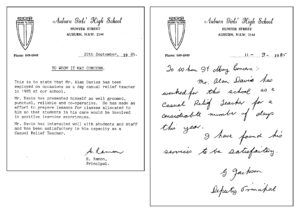 Auburn Girls' High School
HUNTER STREET
AUBURN, N.S.W. 2144
27th September, 1985.
TO WHOM IT MAY CONCERN:
This is to state that Mr. Alan Davies has been
employed on occasions as a day casual relief teacher
in 1985 at our school.
Mr. Davis has presented himself as well groomed,
punctual, reliable and co-operative. He has made an
effort to prepare lessons for classes allocated to
him so that students in his care would be involved
in positive learning experiences.
Mr. Davis has interacted well with students and Staff
and has been satisfactory in his capacity as a
Casual Relief Teacher.
Principal.
Auburn Girls' High School
HUNTER STREET
AUBURN, N.S.W. 2144
11 - 9 - 1985
To Whom It May Concern:
Mr. Alan David has
worked for this school as a
Casual Relief Teacher for a
considerable number of days
this year.
I have found his
service to be satisfactory.
G Jackson
Deputy Principal